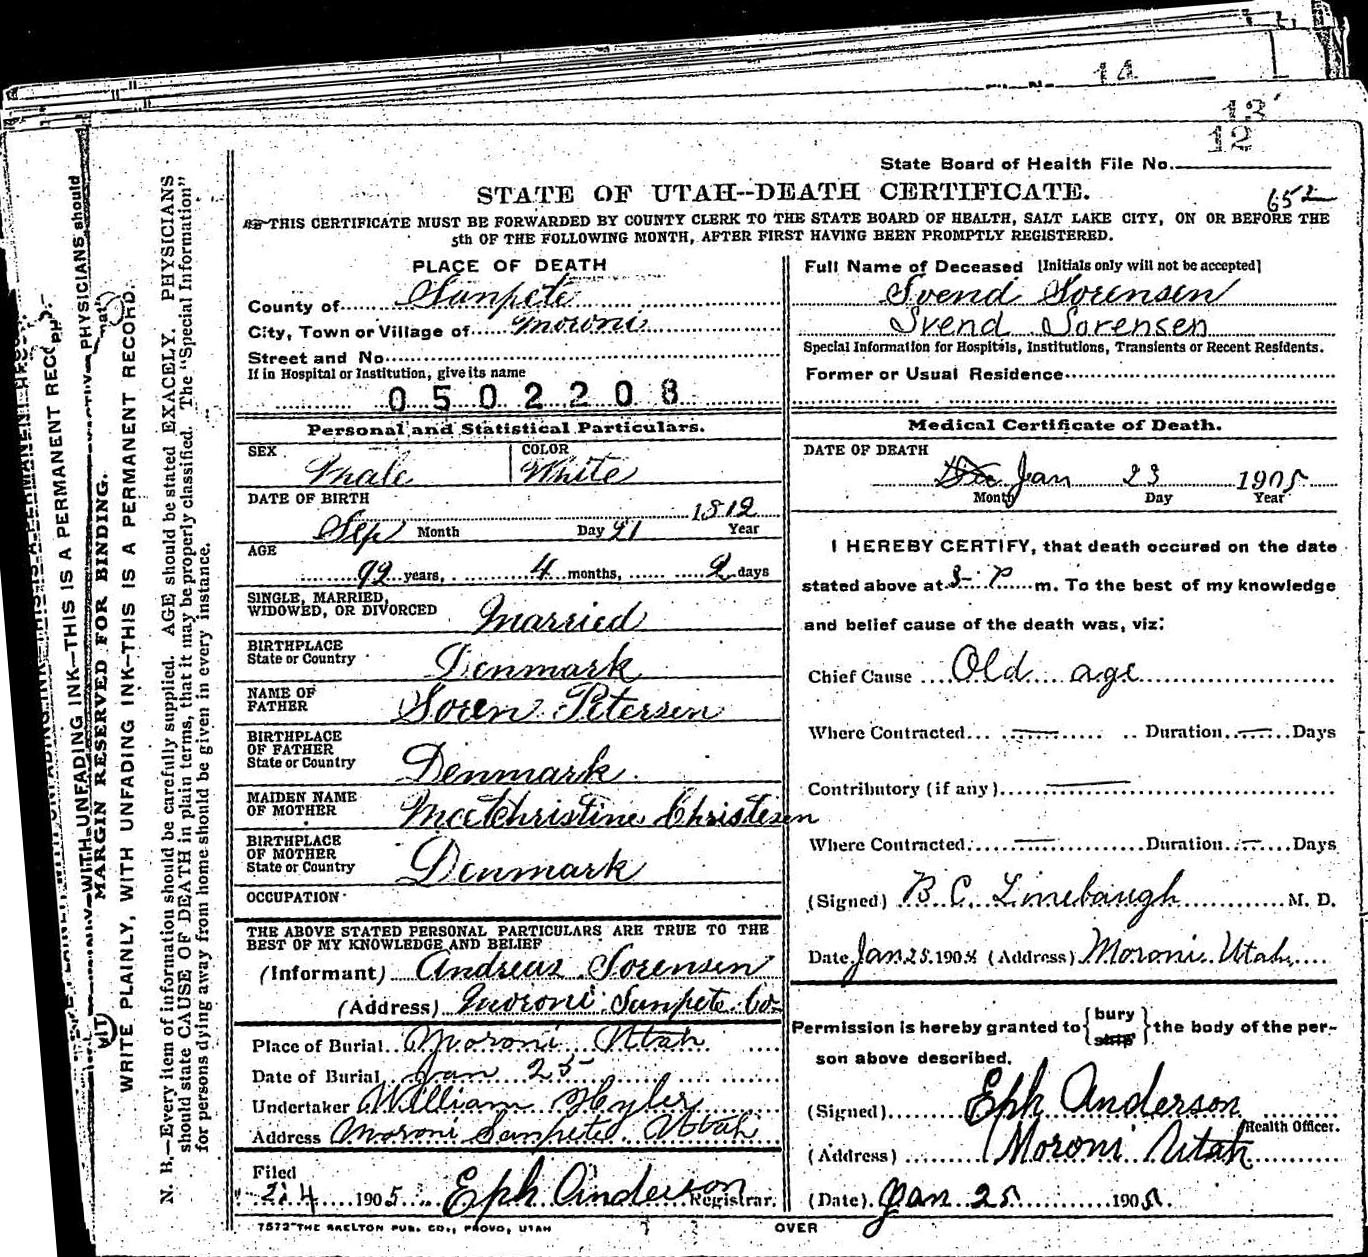 14
13
12
State Board of Health File No.
STATE OF UTAH--DEATH CERTIFICATE.
652
THIS CERTIFICATE MUST BE FORWARDED BY COUNTY CLERK TO THE STATE BOARD OF HEALTH, SALT LAKE CITY, ON OR BEFORE THE
5th OF THE FOLLOWING MONTH, AFTER FIRST HAVING BEEN PROMPTLY REGISTERED.
PLACE OF DEATH
County of Sanpete
City, Town or Village of Moroni
Street and No.
If in Hospital or Institution, give its name
0502208
Personal and Statistical Particulars.
SEX Male COLOR White
DATE OF BIRTH
Sep Month Day 21 1812 Year
AGE
92 years, 4 months, 2 days
SINGLE, MARRIED,
WIDOWED, OR DIVORCED Married
BIRTHPLACE
State or Country Denmark
NAME OF
FATHER Soren Petersen
BIRTHPLACE
OF FATHER
State or Country Denmark
MAIDEN NAME
OF MOTHER Christine Christesen
BIRTHPLACE
OF MOTHER
State or Country Denmark
OCCUPATION
THE ABOVE STATED PERSONAL PARTICULARS ARE TRUE TO THE
BEST OF MY KNOWLEDGE AND BELIEF
(Informant) Andreas Sorensen
(Address) Moroni Sanpete Co
Place of Burial Moroni Utah
Date of Burial Jan 25
Undertaker William Hyler
Address Moroni Sanpete Utah
Filed
2.4 1905 Eph Anderson Registrar.
7572 THE SKELTON PUB. CO., PROVO, UTAH
Full Name of Deceased [Initials only will not be accepted]
Svend Sorensen
Svend Sorensen
Special Information for Hospitals, Institutions, Transients or Recent Residents.
Former or Usual Residence
Medical Certificate of Death.
DATE OF DEATH
Jan 23 1905
Month Day Year
I HEREBY CERTIFY, that death occured on the date
stated above at P m. To the best of my knowledge
and belief cause of the death was, viz:
Chief Cause Old age
Where Contracted Duration Days
Contributory (if any)
Where Contracted Duration Days
(Signed) B C Linebaugh M. D.
Date Jan 25 1905 (Address) Moroni Utah
Permission is hereby granted to {bury ship} the body of the per-
son above described.
(Signed) Eph Anderson
Health Officer.
(Address) Moroni Utah
(Date) Jan 25 1905.
OVER
PHYSICIANS should
THIS IS A PERMANENT REC
WITH UNFADING INK—THIS IS A PERMANENT REC
MARGIN RESERVED FOR BINDING.
WRITE PLAINLY, WITH UNFADING INK—THIS IS A PERMANENT RECORD.
N. B.—Every item of information should be carefully supplied. AGE should be stated EXACELY. PHYSICIANS
should state CAUSE OF DEATH in plain terms, that it may be properly classified. The "Special Information"
for persons dying away from home should be given in every instance.